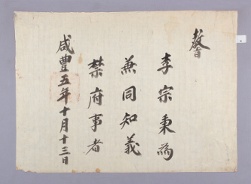 李宗秉爲
兼同知義
禁府事者
咸豐五年十月十三日